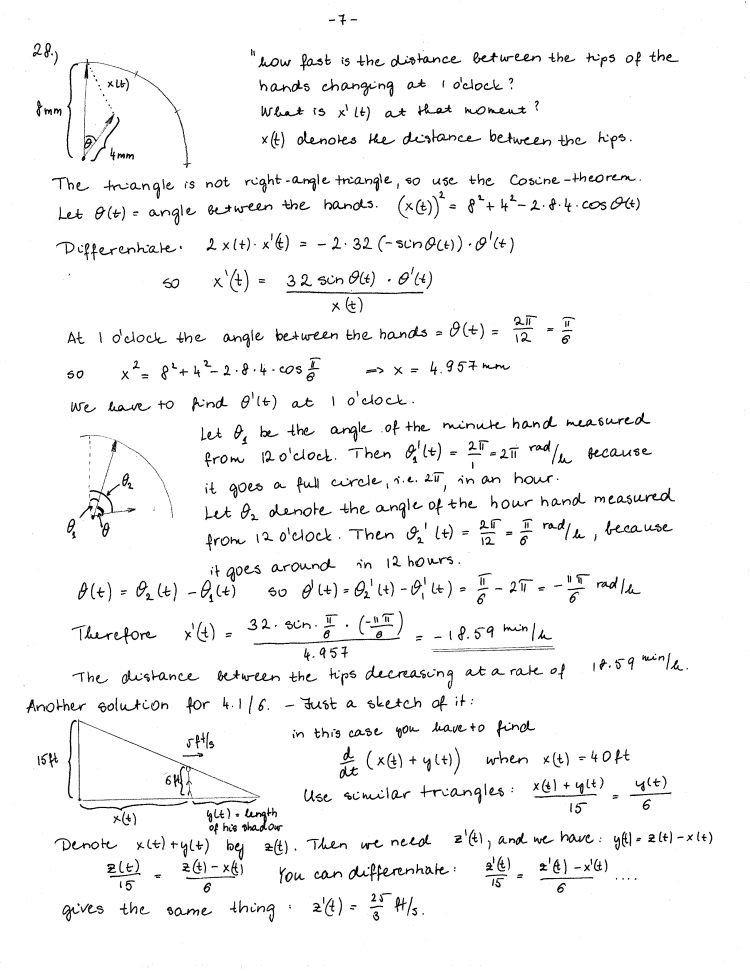 -7-
28.)
"how fast is the distance between the tips of the
hands changing at 1 o'clock?
What is x'(t) at that moment?
x(t) denotes the distance between the tips.
x(t)
8mm
θ
4mm
The triangle is not right-angle triangle, so use the Cosine-theorem.
Let θ(t) = angle between the hands. (x(t))² = 8² + 4² - 2·8·4·cos θ(t)
Differentiate. 2x(t)·x'(t) = -2·32(-sin θ(t))·θ'(t)
so x'(t) = 32 sin θ(t) · θ'(t) / x(t)
At 1 o'clock the angle between the hands = θ(t) = 2π/12 = π/6
so x² = 8² + 4² - 2·8·4·cos π/6 ⇒ x = 4.957 mm
We have to find θ'(t) at 1 o'clock.
Let θ₁ be the angle of the minute hand measured
from 12 o'clock. Then θ₁'(t) = 2π/1 = 2π rad/h because
it goes a full circle, i.e. 2π, in an hour.
Let θ₂ denote the angle of the hour hand measured
from 12 o'clock. Then θ₂'(t) = 2π/12 = π/6 rad/h, because
it goes around in 12 hours.
θ₂
θ₁ θ
θ(t) = θ₂(t) - θ₁(t) so θ'(t) = θ₂'(t) - θ₁'(t) = π/6 - 2π = -11π/6 rad/h
Therefore x'(t) = 32·sin·π/6·(-11π/6) / 4.957 = -18.59 mm/h
The distance between the tips decreasing at a rate of 18.59 mm/h.
Another solution for 4.1/6. - Just a sketch of it:
15ft
5ft/s
6ft
x(t)
y(t) = length
of his shadow
in this case you have to find
d/dt (x(t) + y(t)) when x(t) = 40ft
Use similar triangles: x(t) + y(t) / 15 = y(t) / 6
Denote x(t) + y(t) by z(t). Then we need z'(t), and we have: y(t) = z(t) - x(t)
z(t)/15 = z(t) - x(t) / 6 You can differentiate: z'(t)/15 = z'(t) - x'(t) / 6 ....
gives the same thing: z'(t) = 25/3 ft/s.